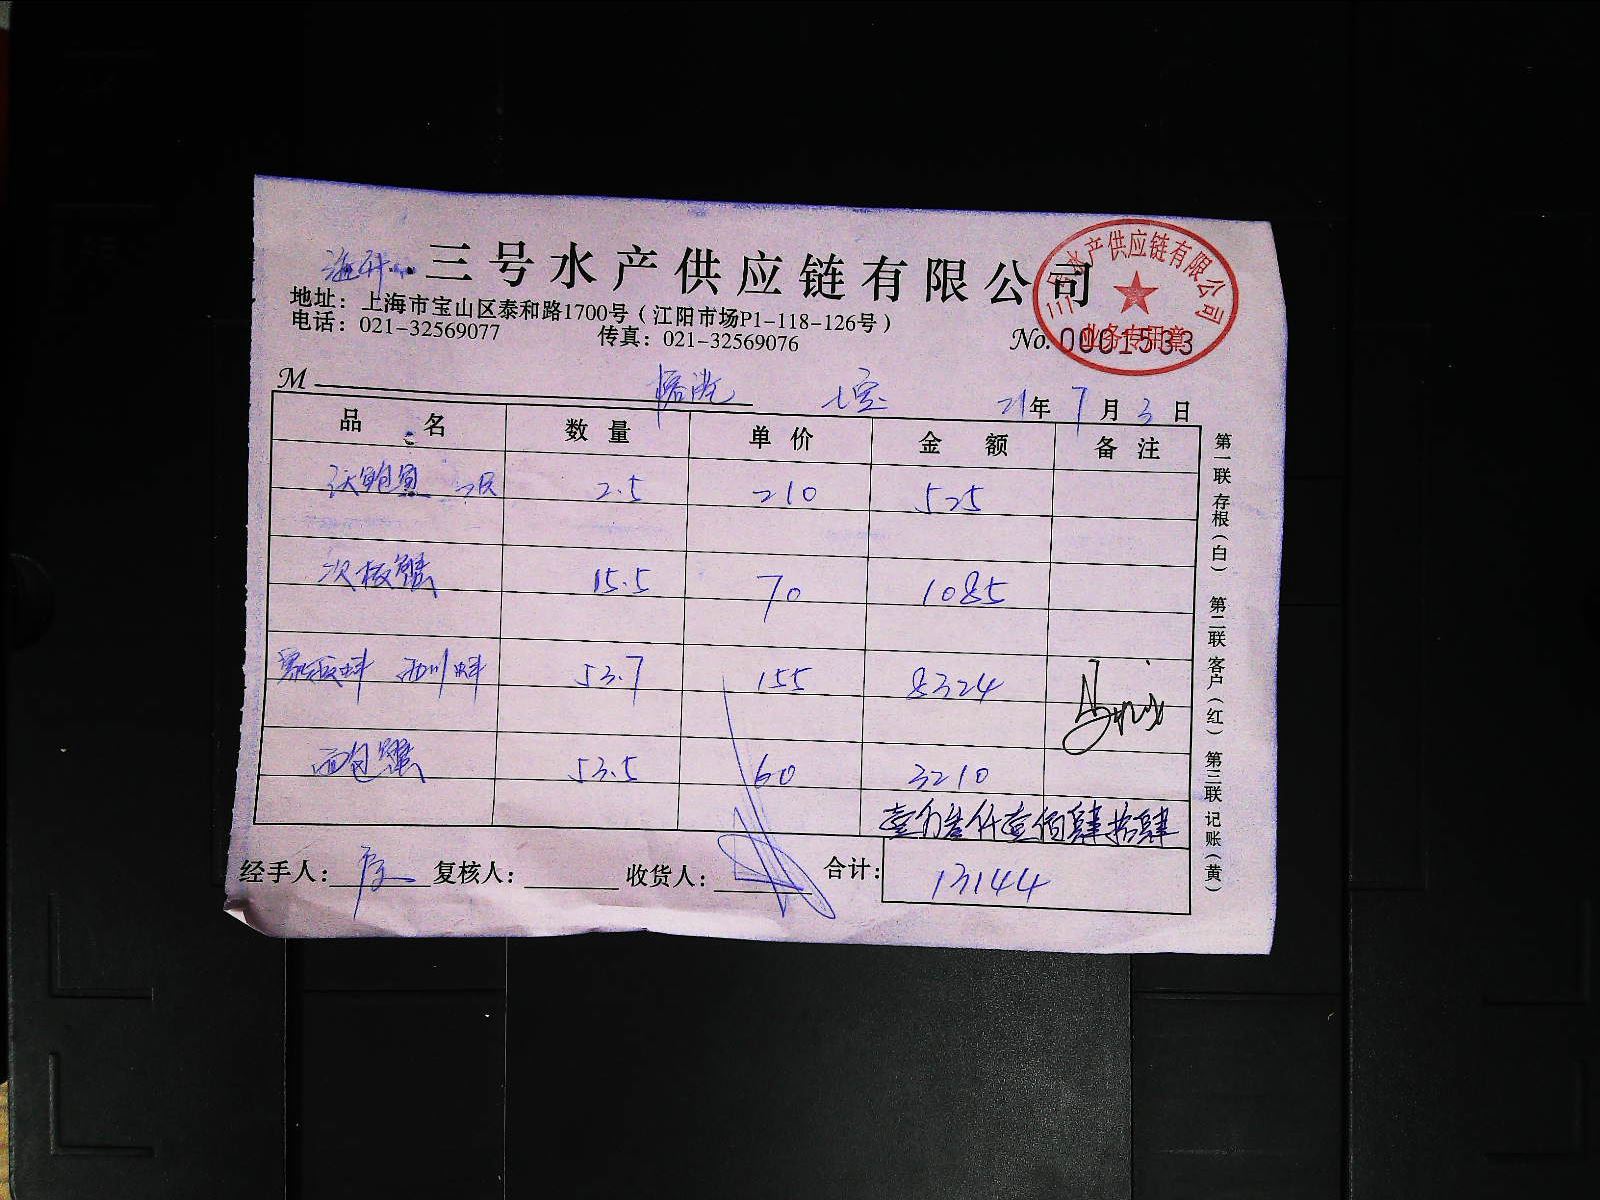 三号水产供应链有限公司
三号水产供应链有限公司
业务专用章
地址：上海市宝山区泰和路1700号（江阳市场P1-118-126号）
电话：021-32569077 传真：021-32569076
No. 0001533
M 七宝 21年7月3日
品名 数量 单价 金额 备注
鲍鱼 2.5 210 525
次板蟹 15.5 70 1085
53.7 155 8324
面包蟹 53.5 60 3210
壹万叁仟壹佰肆拾肆
经手人： 复核人： 收货人： 合计：13144
第一联 存根（白） 第二联 客户（红） 第三联 记账（黄）